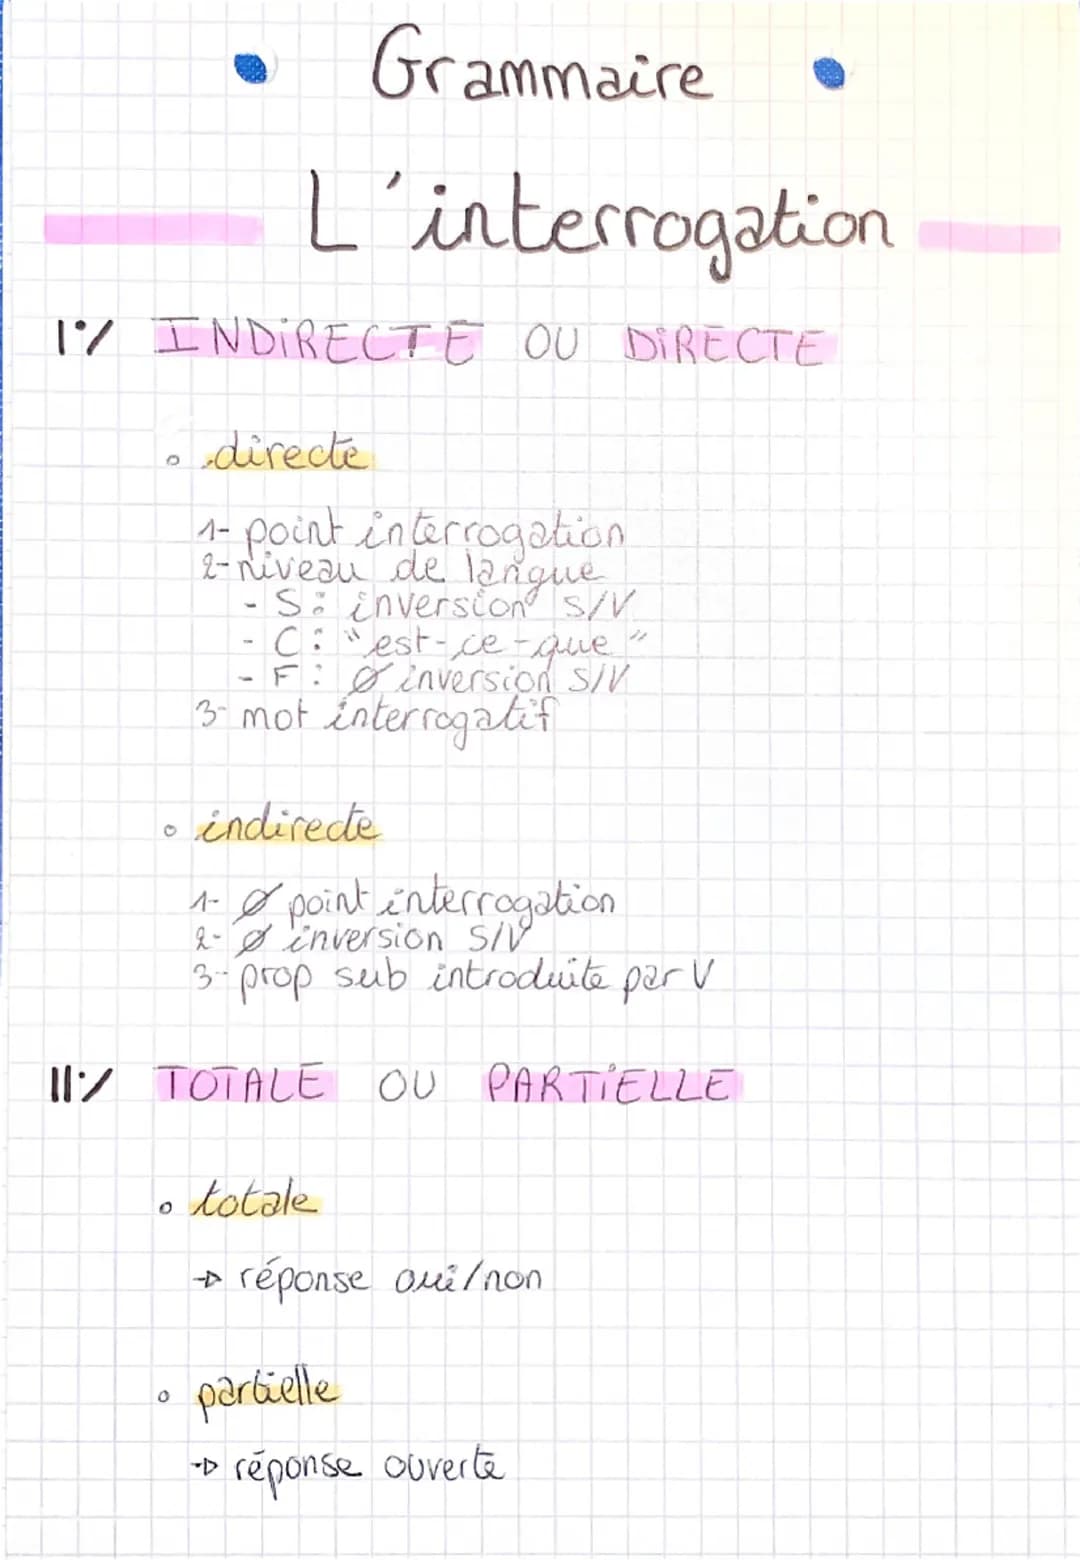 Grammaire
L'interrogation
I°/ INDIRECTE OU DIRECTE
directe
1- point interrogation
2- niveau de langue
- S : inversion S/V
- C : "est-ce-que"
- F : Ø inversion S/V
3- mot interrogatif
indirecte
1- Ø point interrogation
2- Ø inversion S/V
3- prop sub introduite par V
II°/ TOTALE OU PARTIELLE
totale
→ réponse oui/non
partielle
→ réponse ouverte